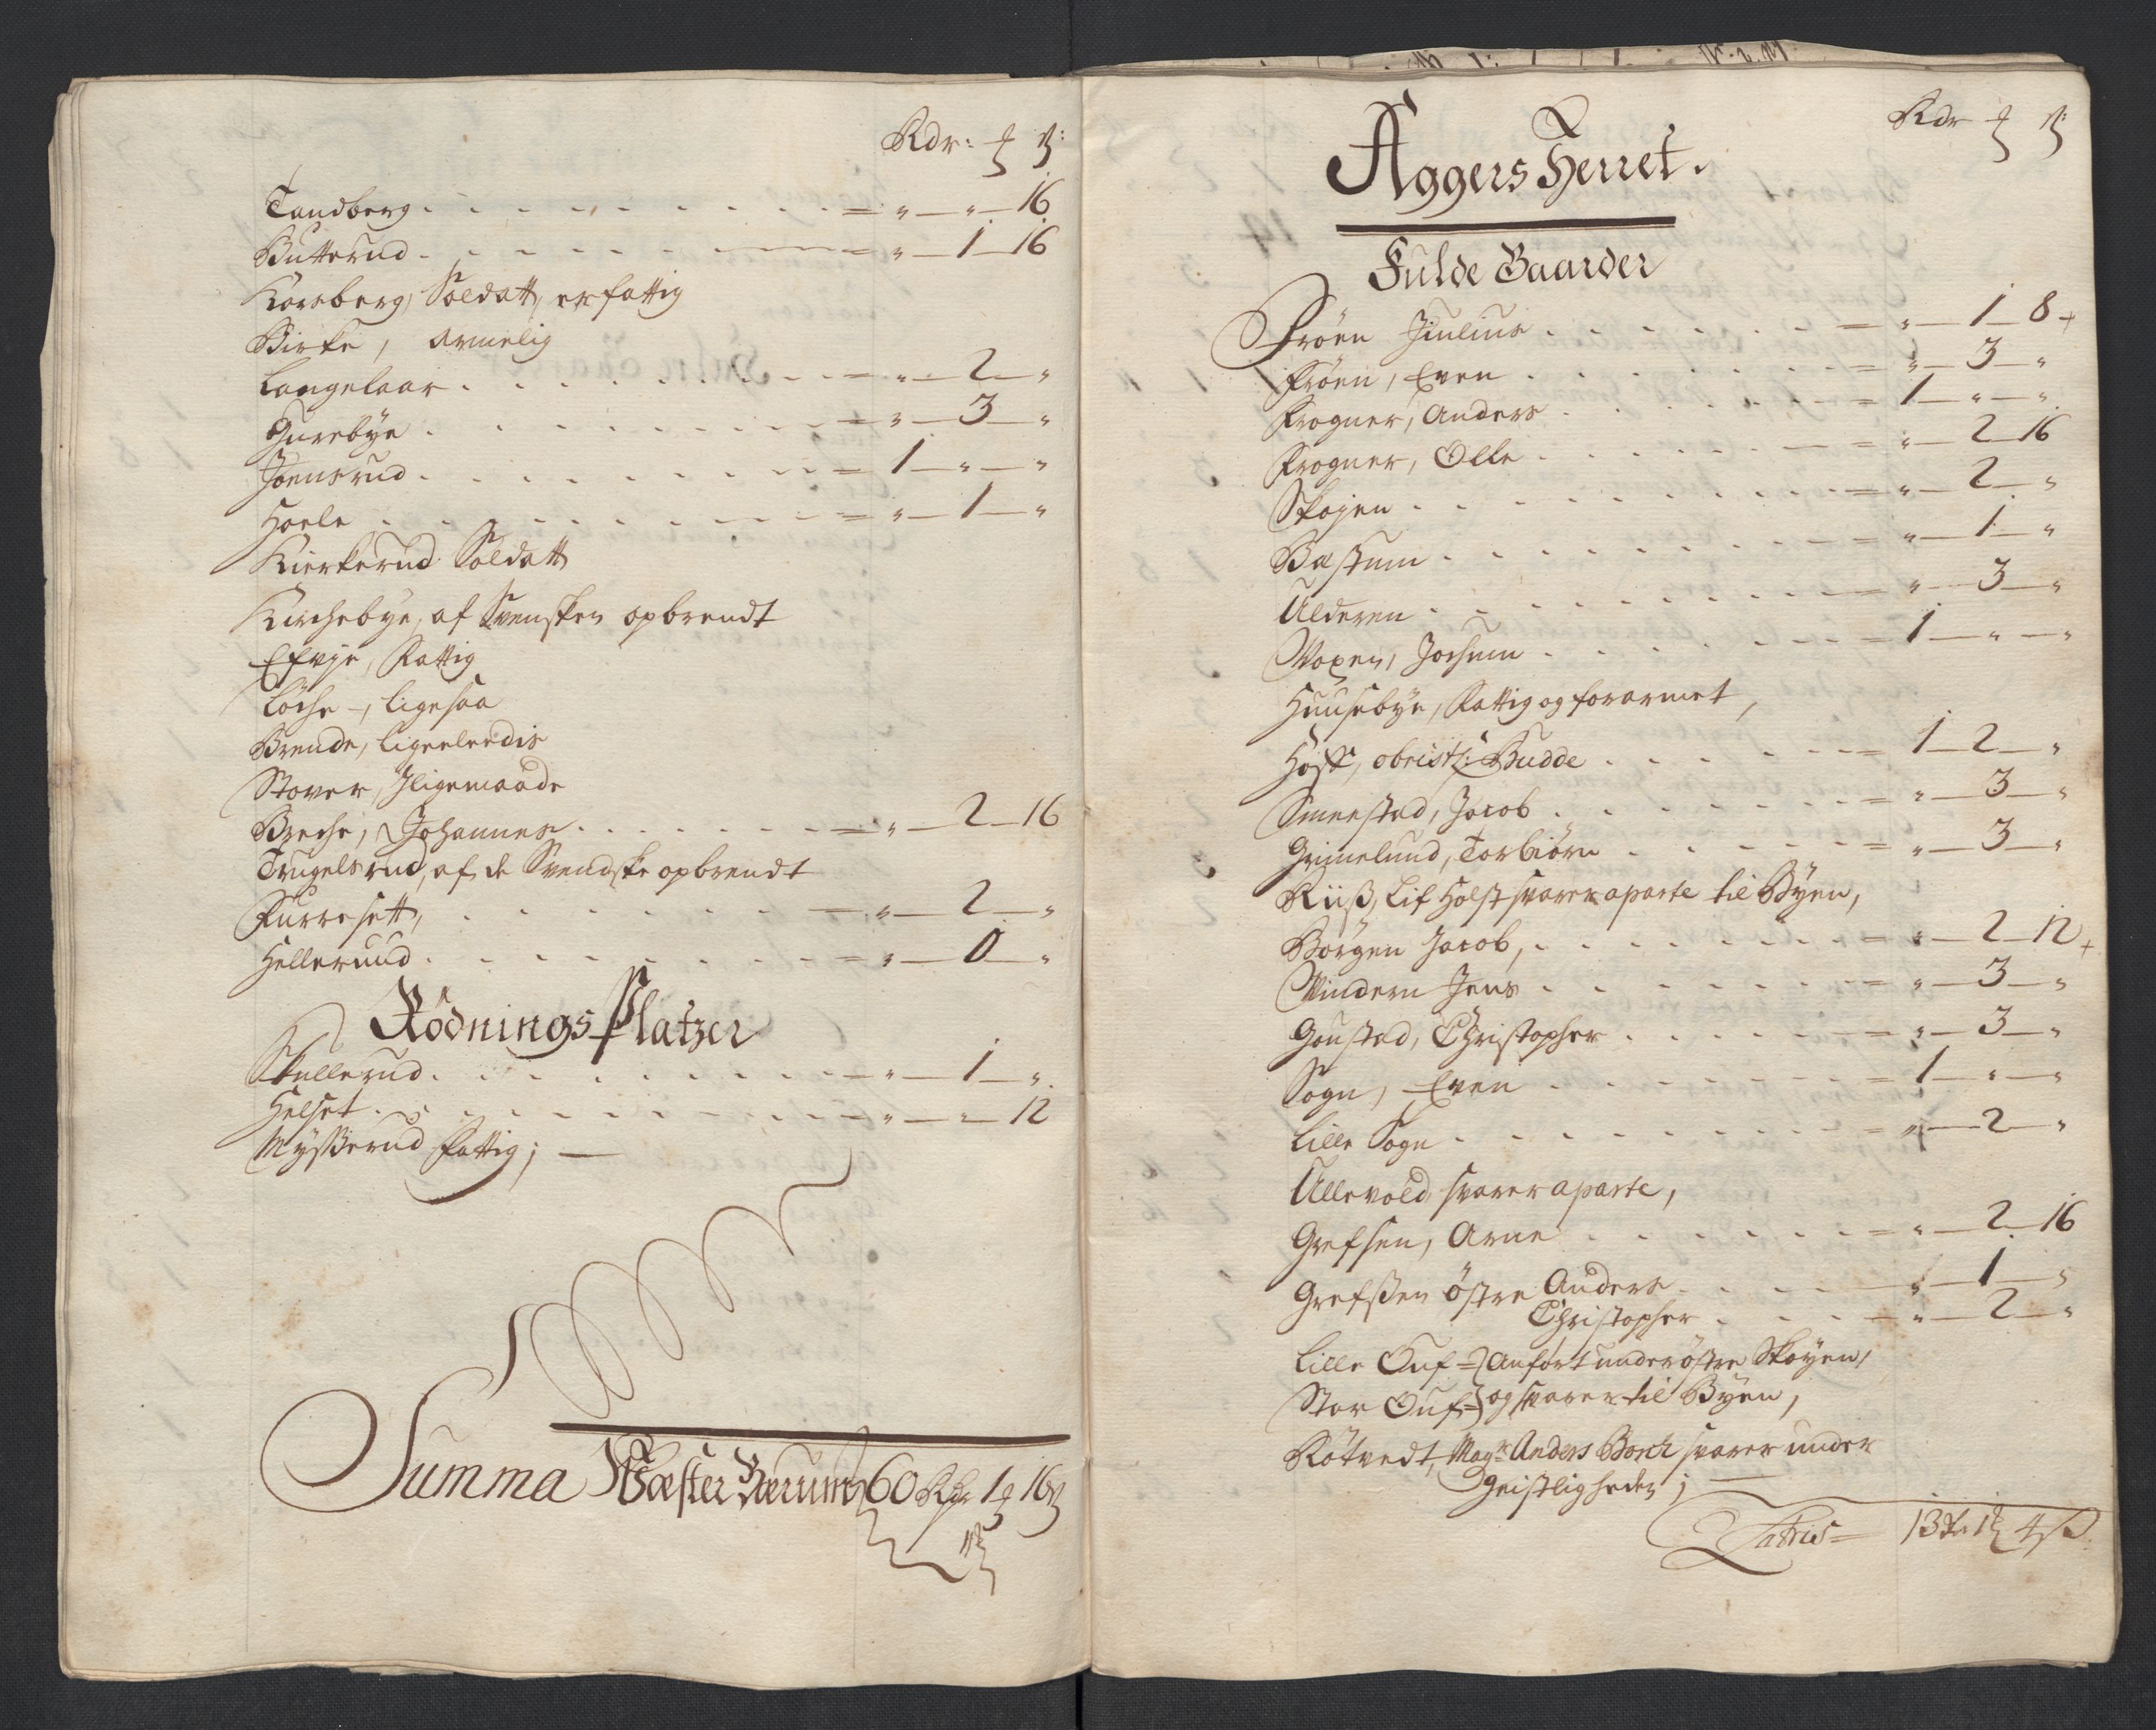 Rdr: ꝥ ß:
Tandberg . . . . . . . . . = „ — „ — 16
Butterud . . . . . . . . = „ — 1 — 16
Korsberg, Soldatt, er fattig
Birke, armelig
Langelaar . . . . . . . . = „ — 2 — „
Gurebye . . . . . . . . = „ — 3 — „
Joensrud . . . . . . . . = 1 — „ — „
Hoele . . . . . . . . = „ — 1 — „
Kierkerud Soldatt
Kirchebye, af Svensken opbrendt
Efvje, Fattig
Löche, ligesaa
Brende, ligeeleedis
Stover, Iligemaade
Breche, Johannes . . . . . . = „ — 2 — 16
Trugelsrud, af de Svendske opbrendt
Furresett, . . . . . . . . — „ — 2 — „
Hellerud . . . . . . . . = „ — 0 — „
Rödnings Platzer
Skullerud . . . . . . . . — „ — 1 — „
Helset . . . . . . . . — „ — „ — 12
Myßerud Fattig; —
Summa Væster Bærum 60 Rdr 1 16 ß
Rdr ß:
Aggers Herret.
Fulde Gaarder
Fröen Julius . . . . . . = „ — 1 — 8 +
Fröen, Even . . . . . . = „ — 3 — „
Frogner, Anders . . . . . . = 1 — „ — „
Frogner, Olle . . . . . . = „ — 2 — 16
Skøyen . . . . . . . . = „ — 2 — „
Bæstum . . . . . . . . = „ — 1 — „
Ulderen . . . . . . . . = „ — 3 — „
Voxen, Jochum . . . . . . = 1 — „ — „
Huusebye, Fattig og forarmet,
Hoff, obristl: Budde . . . . . = 1 — 2 — „
Smeestad, Jacob . . . . . . = „ — 3 — „
Grimelund, Torbiörn . . . . . = „ — 3 — „
Riiß, Lif Holst svarer aparte til Byen,
Borgen Jacob, . . . . . . = „ — 2 — 12 +
Vindern Jens . . . . . . = „ — 3 — „
Goustad, Christopher . . . . . = „ — 3 — „
Sogn, Even . . . . . . = 1 — „ — „
Lille Sogn . . . . . . . = „ — 2 — „
Ullevold svarer aparte,
Grefsen, Arne . . . . . . = „ — 2 — 16
Grefßen östre Anders . . . . — „ — 1 — „
Christopher . . . . — „ — 2 — „
Lille Ouf = } Anfört under östre Skøyen,
Stor Ouf = } og svarer til Byen,
Rötvedt, Magr Anders Borch svarer under
Geistligheden; —
Latus = 13 dr 1 4 ß